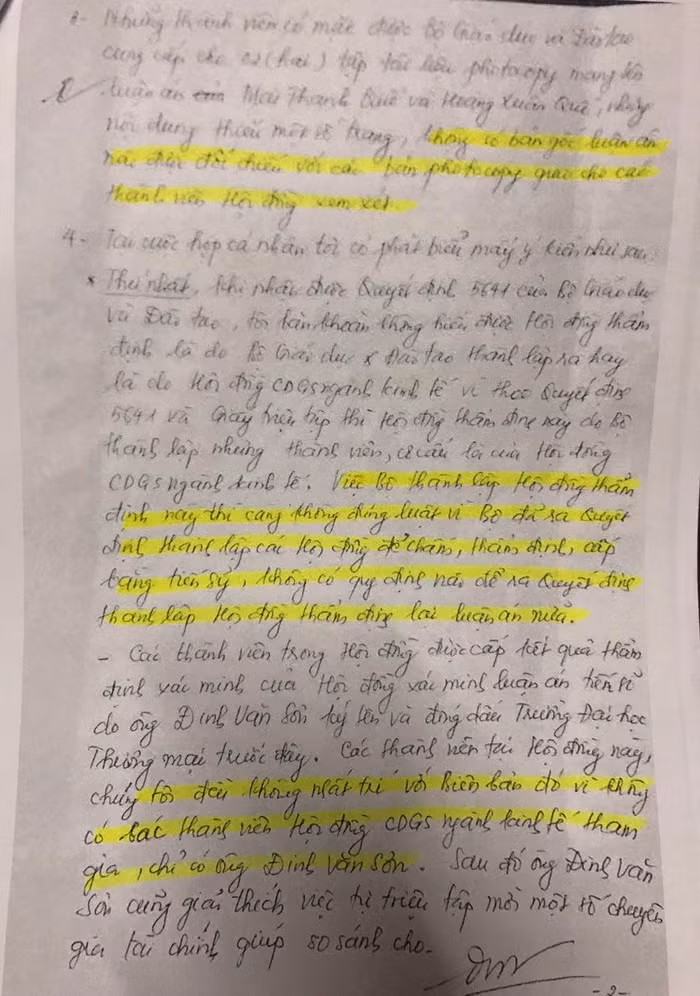 3- Những thành viên có mặt được Bộ Giáo dục và Đào tạo
cung cấp cho 02 (hai) tập tài liệu photocopy mang tên
luận án của Mai Thanh Quế và Hoàng Xuân Quế, nhưng
nội dung thiếu một số trang, không có bản gốc luận án
nào được đối chiếu với các bản photocopy giao cho các
thành viên Hội đồng xem xét.
4- Tại cuộc họp cá nhân tôi có phát biểu mấy ý kiến như sau
* Thứ nhất, khi nhận được Quyết định 5641 của Bộ Giáo dục
và Đào tạo, tôi băn khoăn không hiểu được Hội đồng thẩm
định là do Bộ Giáo dục & Đào tạo thành lập ra hay
là do Hội đồng CDGS ngành kinh tế vì theo Quyết định
5641 và Giấy triệu tập thì Hội đồng thẩm định này do Bộ
thành lập nhưng thành viên, cơ cấu là của Hội đồng
CDGS ngành kinh tế. Việc Bộ thành lập Hội đồng thẩm
định này thì càng không đúng luật vì Bộ đã ra Quyết
định thành lập các Hội đồng để chấm, thẩm định, cấp
bằng tiến sỹ, không có quy định nào để ra Quyết định
thành lập Hội đồng thẩm định lại luận án nữa.
- Các thành viên trong Hội đồng được cấp kết quả thẩm
định xác minh của Hội đồng xác minh luận án tiến sĩ
do ông Đinh Văn Sơn ký tên và đóng dấu Trường Đại học
Thương mại trước đây. Các thành viên tại Hội đồng này,
chúng tôi đều không nhất trí với Biên bản đó vì không
có các thành viên Hội đồng CDGS ngành kinh tế tham
gia, chỉ có ông Đinh Văn Sơn. Sau đó ông Đinh Văn
Sơn cũng giải thích việc tự triệu tập mời một số chuyên
gia tài chính giúp so sánh cho.
- 2 -